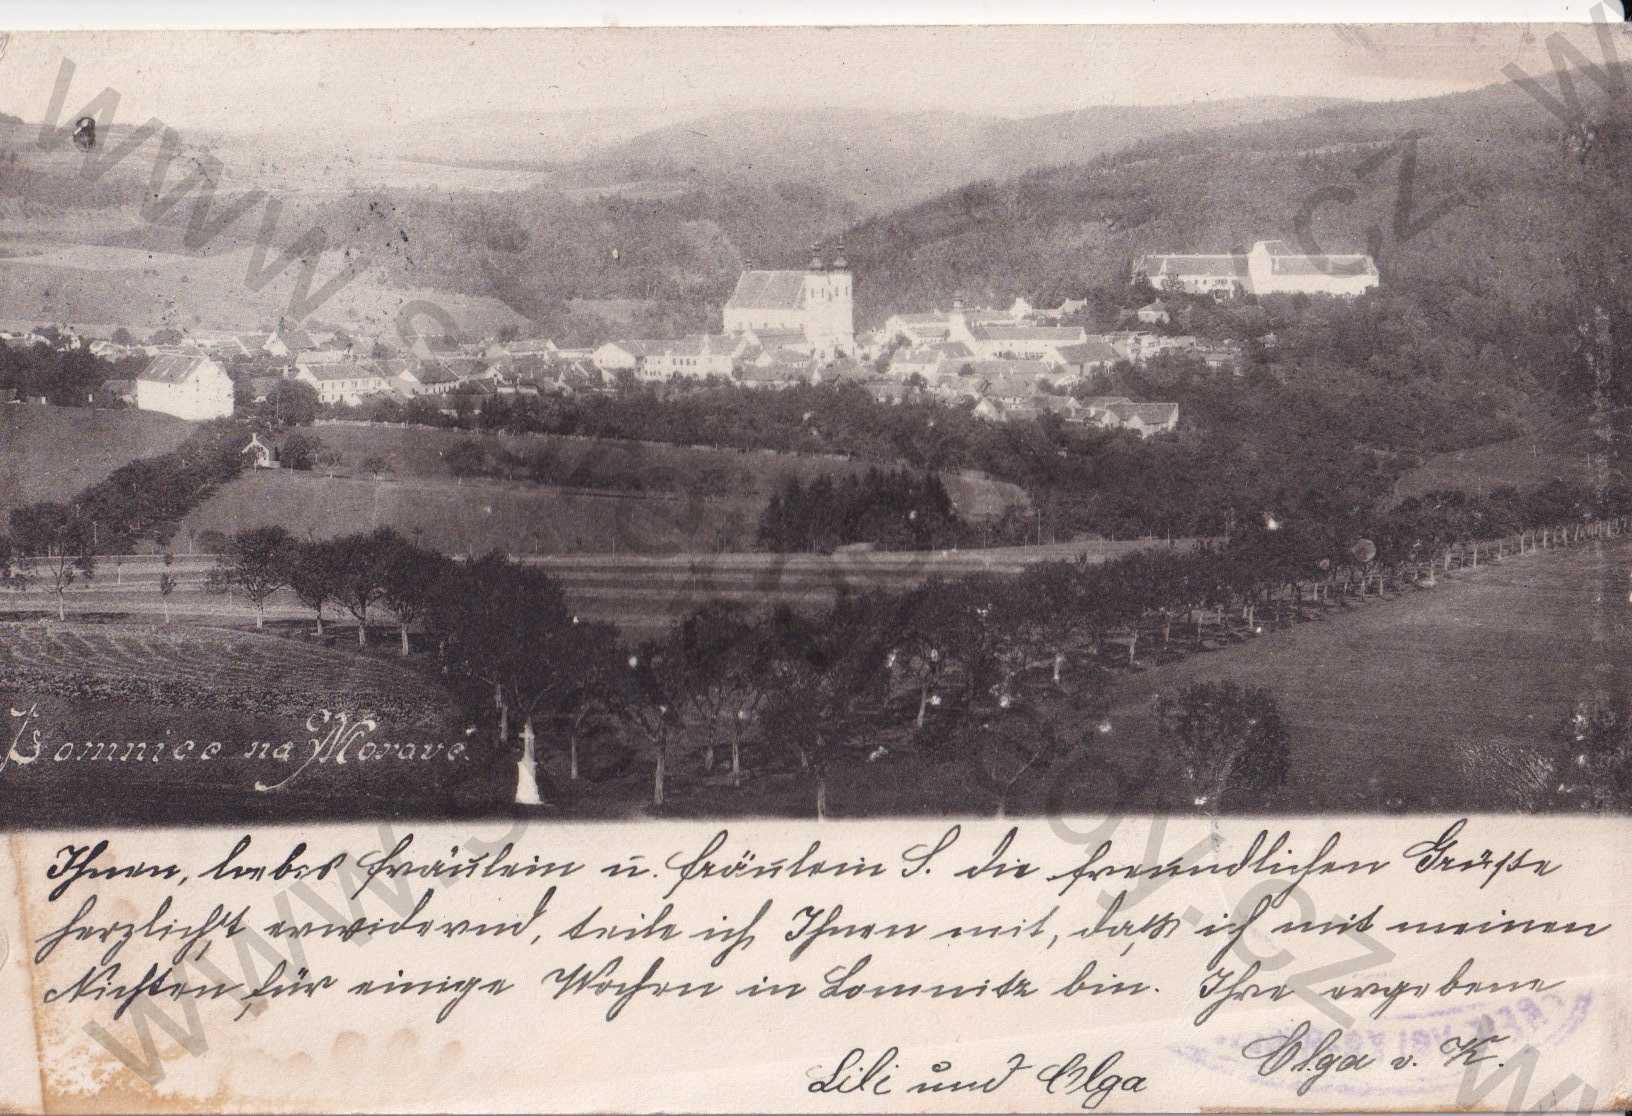 Lomnice na Moravě.
Ihnen, liebes Fräulein u. Fräulein S. die freundlichen Grüße
herzlichst erwidernd, teile ich Ihnen mit, daß ich mit meinen
Nichten für einige Wochen in Lomnitz bin. Ihre ergebene
Olga v. K.
Lili und Olga